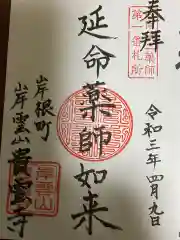 奉拝
第一番札所
薬師
令和三年四月九日
延命薬師如来
岸根町
岸雲山
貴雲寺
岸雲山